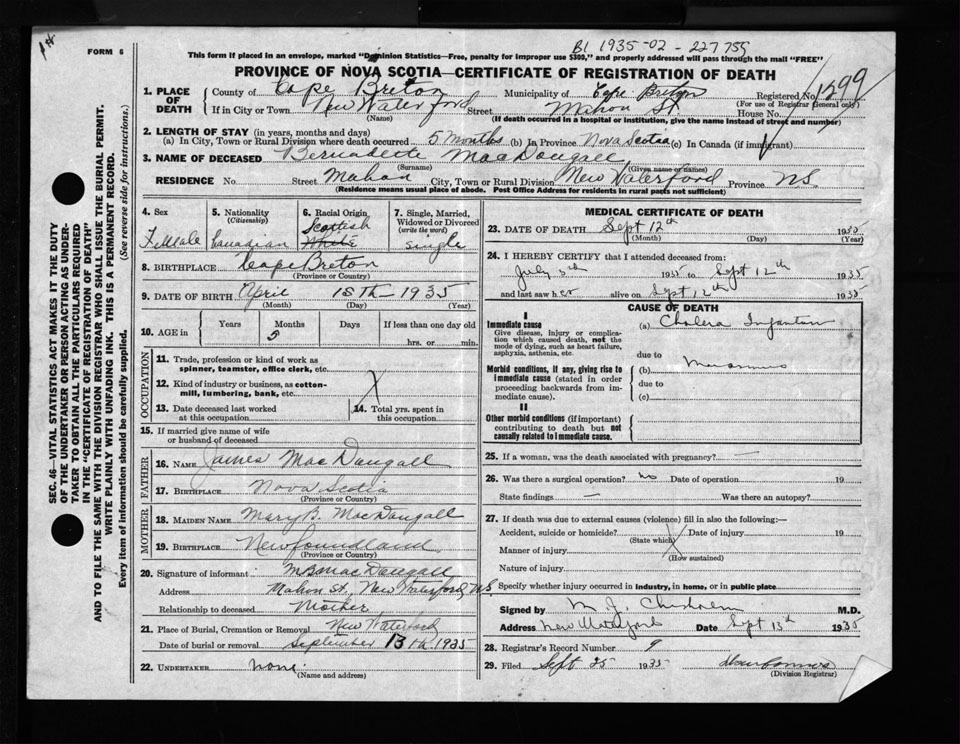 FORM 6
B1 1935-02-227759
This form if placed in an envelope, marked "Dominion Statistics—Free, penalty for improper use $300," and properly addressed will pass through the mail "FREE"
PROVINCE OF NOVA SCOTIA—CERTIFICATE OF REGISTRATION OF DEATH
1. PLACE OF DEATH
County of Cape Breton Municipality of Cape Breton Registered No. 1299
(For use of Registrar General only)
If in City or Town New Waterford Street Mahon St. House No.
(Name) (If death occurred in a hospital or institution, give the name instead of street and number)
2. LENGTH OF STAY (in years, months and days)
(a) In City, Town or Rural Division where death occurred 5 months (b) In Province Nova Scotia (c) In Canada (if immigrant)
3. NAME OF DECEASED Bernadette MacDougall
(Surname) (Given name or names)
RESIDENCE No. Street Mahon City, Town or Rural Division New Waterford Province NS
(Residence means usual place of abode. Post Office Address for residents in rural parts not sufficient)
4. Sex Female
5. Nationality (Citizenship) Canadian
6. Racial Origin Scottish White
7. Single, Married, Widowed or Divorced (write the word) single
8. BIRTHPLACE Cape Breton
(Province or Country)
9. DATE OF BIRTH April 18th - 1935
(Month) (Day) (Year)
10. AGE in Years Months Days If less than one day old
5 hrs. or min.
OCCUPATION
11. Trade, profession or kind of work as spinner, teamster, office clerk, etc.
12. Kind of industry or business, as cotton-mill, lumbering, bank, etc.
13. Date deceased last worked at this occupation
14. Total yrs. spent in this occupation
15. If married give name of wife or husband of deceased
FATHER
16. NAME James MacDougall
17. BIRTHPLACE Nova Scotia
(Province or Country)
MOTHER
18. MAIDEN NAME Mary B. MacDougall
19. BIRTHPLACE Newfoundland
(Province or Country)
20. Signature of informant M B MacDougall
Address Mahon St., New Waterford, NS
Relationship to deceased Mother
21. Place of Burial, Cremation or Removal New Waterford
Date of burial or removal September 13th, 1935
22. UNDERTAKER none
(Name and address)
MEDICAL CERTIFICATE OF DEATH
23. DATE OF DEATH Sept 12th 1935
(Month) (Day) (Year)
24. I HEREBY CERTIFY that I attended deceased from:
July 1935 to Sept 12th 1935
and last saw her alive on Sept 12th 1935
CAUSE OF DEATH
I
Immediate cause
Give disease, injury or complication which caused death, not the mode of dying, such as heart failure, asphyxia, asthenia, etc.
(a) Cholera Infantum
due to
Morbid conditions, if any, giving rise to immediate cause (stated in order proceeding backwards from immediate cause).
(b) Marasmus
due to
(c)
II
Other morbid conditions (if important) contributing to death but not causally related to immediate cause.
25. If a woman, was the death associated with pregnancy? —
26. Was there a surgical operation? no Date of operation 19
State findings — Was there an autopsy?
27. If death was due to external causes (violence) fill in also the following:—
Accident, suicide or homicide? Date of injury 19
(State which)
Manner of injury
(How sustained)
Nature of injury
Specify whether injury occurred in industry, in home, or in public place
Signed by M. J. M.D.
Address New Waterford Date Sept 13th 1935
28. Registrar's Record Number 9
29. Filed Sept 25 1935
(Division Registrar)
SEC. 46—VITAL STATISTICS ACT MAKES IT THE DUTY
OF THE UNDERTAKER OR PERSON ACTING AS UNDER-
TAKER TO OBTAIN ALL THE PARTICULARS REQUIRED
IN THE "CERTIFICATE OF REGISTRATION OF DEATH"
AND TO FILE THE SAME WITH THE DIVISION REGISTRAR WHO SHALL ISSUE THE BURIAL PERMIT.
WRITE PLAINLY WITH UNFADING INK. THIS IS A PERMANENT RECORD.
Every item of information should be carefully supplied. (See reverse side for instructions.)